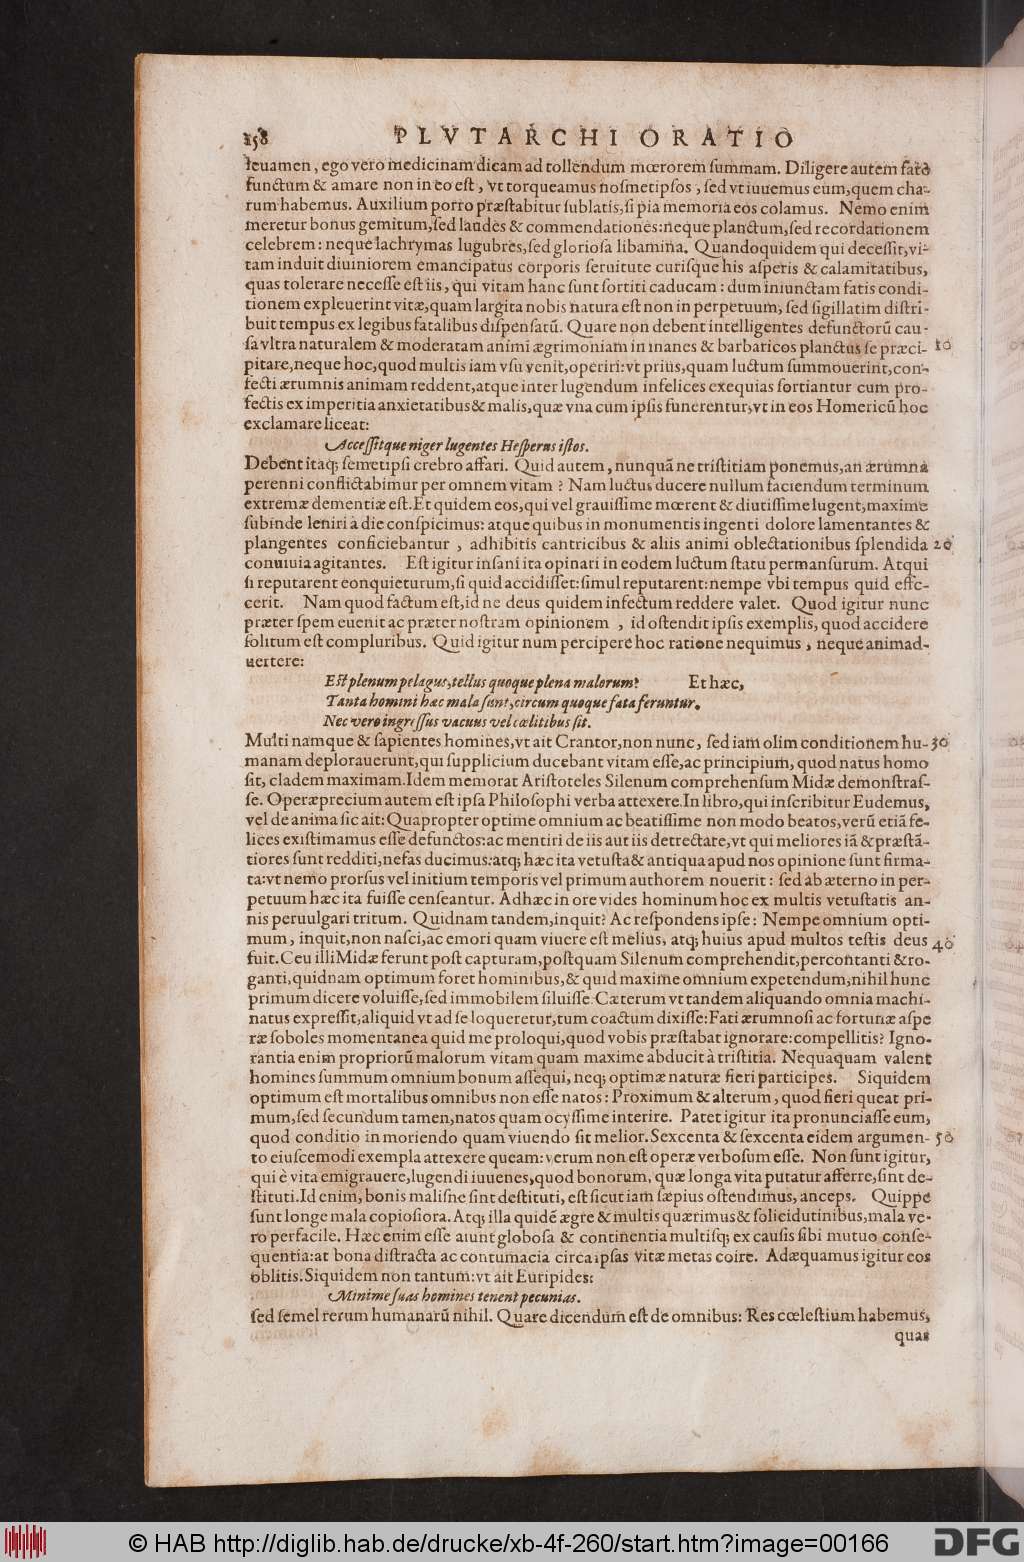 158 PLVTARCHI ORATIO
leuamen, ego vero medicinam dicam ad tollendum mœrorem summam. Diligere autem fato
functum & amare non in eo est, vt torqueamus nosmetipsos, sed vt iuuemus eum, quem cha-
rum habemus. Auxilium porro præstabitur sublatis, si pia memoria eos colamus. Nemo enim
meretur bonus gemitum, sed laudes & commendationes: neque planctum, sed recordationem
celebrem: neque lachrymas lugubres, sed gloriosa libamina. Quandoquidem qui decessit, vi-
tam induit diuiniorem emancipatus corporis seruitute curisque his asperis & calamitatibus,
quas tolerare necesse est iis, qui vitam hanc sunt sortiti caducam: dum iniunctam fatis condi-
tionem expleuerint vitæ, quam largita nobis natura est non in perpetuum, sed sigillatim distri-
buit tempus ex legibus fatalibus dispensatū. Quare non debent intelligentes defunctorū cau-
sa vltra naturalem & moderatam animi ægrimoniam in inanes & barbaricos planctus se præci- 10
pitare, neque hoc, quod multis iam vsu venit, operiri: vt prius, quam luctum summouerint, con-
fecti ærumnis animam reddent, atque inter lugendum infelices exequias sortiantur cum pro-
fectis ex imperitia anxietatibus & malis, quæ vna cum ipsis funerentur, vt in eos Homericū hoc
exclamare liceat:
Accessitque niger lugentes Hesperus istos.
Debent itaq; semetipsi crebro affari. Quid autem, nunquā ne tristitiam ponemus, an ærumna
perenni conflictabimur per omnem vitam? Nam luctus ducere nullum faciendum terminum
extremæ dementiæ est. Et quidem eos, qui vel grauissime mœrent & diutissime lugent, maxime
subinde leniri à die conspicimus: atque quibus in monumentis ingenti dolore lamentantes &
plangentes conficiebantur, adhibitis cantricibus & aliis animi oblectationibus splendida 20
conuiuia agitantes. Est igitur insani ita opinari in eodem luctum statu permansurum. Atqui
si reputarent eonquieturum, si quid accidisset: simul reputarent: nempe vbi tempus quid effe-
cerit. Nam quod factum est, id ne deus quidem infectum reddere valet. Quod igitur nunc
præter spem euenit ac præter nostram opinionem, id ostendit ipsis exemplis, quod accidere
solitum est compluribus. Quid igitur num percipere hoc ratione nequimus, neque animad-
uertere:
Est plenum pelagus, tellus quoque plena malorum? Et hæc,
Tanta homini hæc mala sunt, circum quoque fata feruntur.
Nec vero ingressus vacuus vel cœlitibus sit.
Multi namque & sapientes homines, vt ait Crantor, non nunc, sed iam olim conditionem hu- 30
manam deplorauerunt, qui supplicium ducebant vitam esse, ac principium, quod natus homo
sit, cladem maximam. Idem memorat Aristoteles Silenum comprehensum Midæ demonstras-
se. Operæprecium autem est ipsa Philosophi verba attexere. In libro, qui inscribitur Eudemus,
vel de anima sic ait: Quapropter optime omnium ac beatissime non modo beatos, verū etiā fe-
lices existimamus esse defunctos: ac mentiri de iis aut iis detrectare, vt qui meliores iā & præstā-
tiores sunt redditi, nefas ducimus: atq; hæc ita vetusta & antiqua apud nos opinione sunt firma-
ta: vt nemo prorsus vel initium temporis vel primum authorem nouerit: sed ab æterno in per-
petuum hæc ita fuisse censeantur. Adhæc in ore vides hominum hoc ex multis vetustatis an-
nis peruulgari tritum. Quidnam tandem, inquit? Ac respondens ipse: Nempe omnium opti-
mum, inquit, non nasci, ac emori quam viuere est melius, atq; huius apud multos testis deus 40
fuit. Ceu illi Midæ ferunt post capturam, postquam Silenum comprehendit, percontanti & ro-
ganti, quidnam optimum foret hominibus, & quid maxime omnium expetendum, nihil hunc
primum dicere voluisse, sed immobilem siluisse. Cæterum vt tandem aliquando omnia machi-
natus expressit, aliquid vt ad se loqueretur, tum coactum dixisse: Fati ærumnosi ac fortunæ aspe
ræ soboles momentanea quid me proloqui, quod vobis præstabat ignorare: compellitis? Igno-
rantia enim propriorū malorum vitam quam maxime abducit à tristitia. Nequaquam valent
homines summum omnium bonum assequi, neq; optimæ naturæ fieri participes. Siquidem
optimum est mortalibus omnibus non esse natos: Proximum & alterum, quod fieri queat pri-
mum, sed secundum tamen, natos quam ocyssime interire. Patet igitur ita pronunciasse eum,
quod conditio in moriendo quam viuendo sit melior. Sexcenta & sexcenta eidem argumen- 50
to eiuscemodi exempla attexere queam: verum non est operæ verbosum esse. Non sunt igitur,
qui è vita emigrauere, lugendi iuuenes, quod bonorum, quæ longa vita putatur afferre, sint de-
stituti. Id enim, bonis malisne sint destituti, est sicut iam sæpius ostendimus, anceps. Quippe
sunt longe mala copiosiora. Atq; illa quidē ægre & multis quærimus & solicidutinibus, mala ve-
ro perfacile. Hæc enim esse aiunt globosa & continentia multisq; ex causis sibi mutuo conse-
quentia: at bona distracta ac contumacia circa ipsas vitæ metas coire. Adæquamus igitur eos
oblitis. Siquidem non tantum: vt ait Euripides:
Minime suas homines tenent pecunias.
sed semel rerum humanarū nihil. Quare dicendum est de omnibus: Res cœlestium habemus,
quas
© HAB http://diglib.hab.de/drucke/xb-4f-260/start.htm?image=00166 DFG